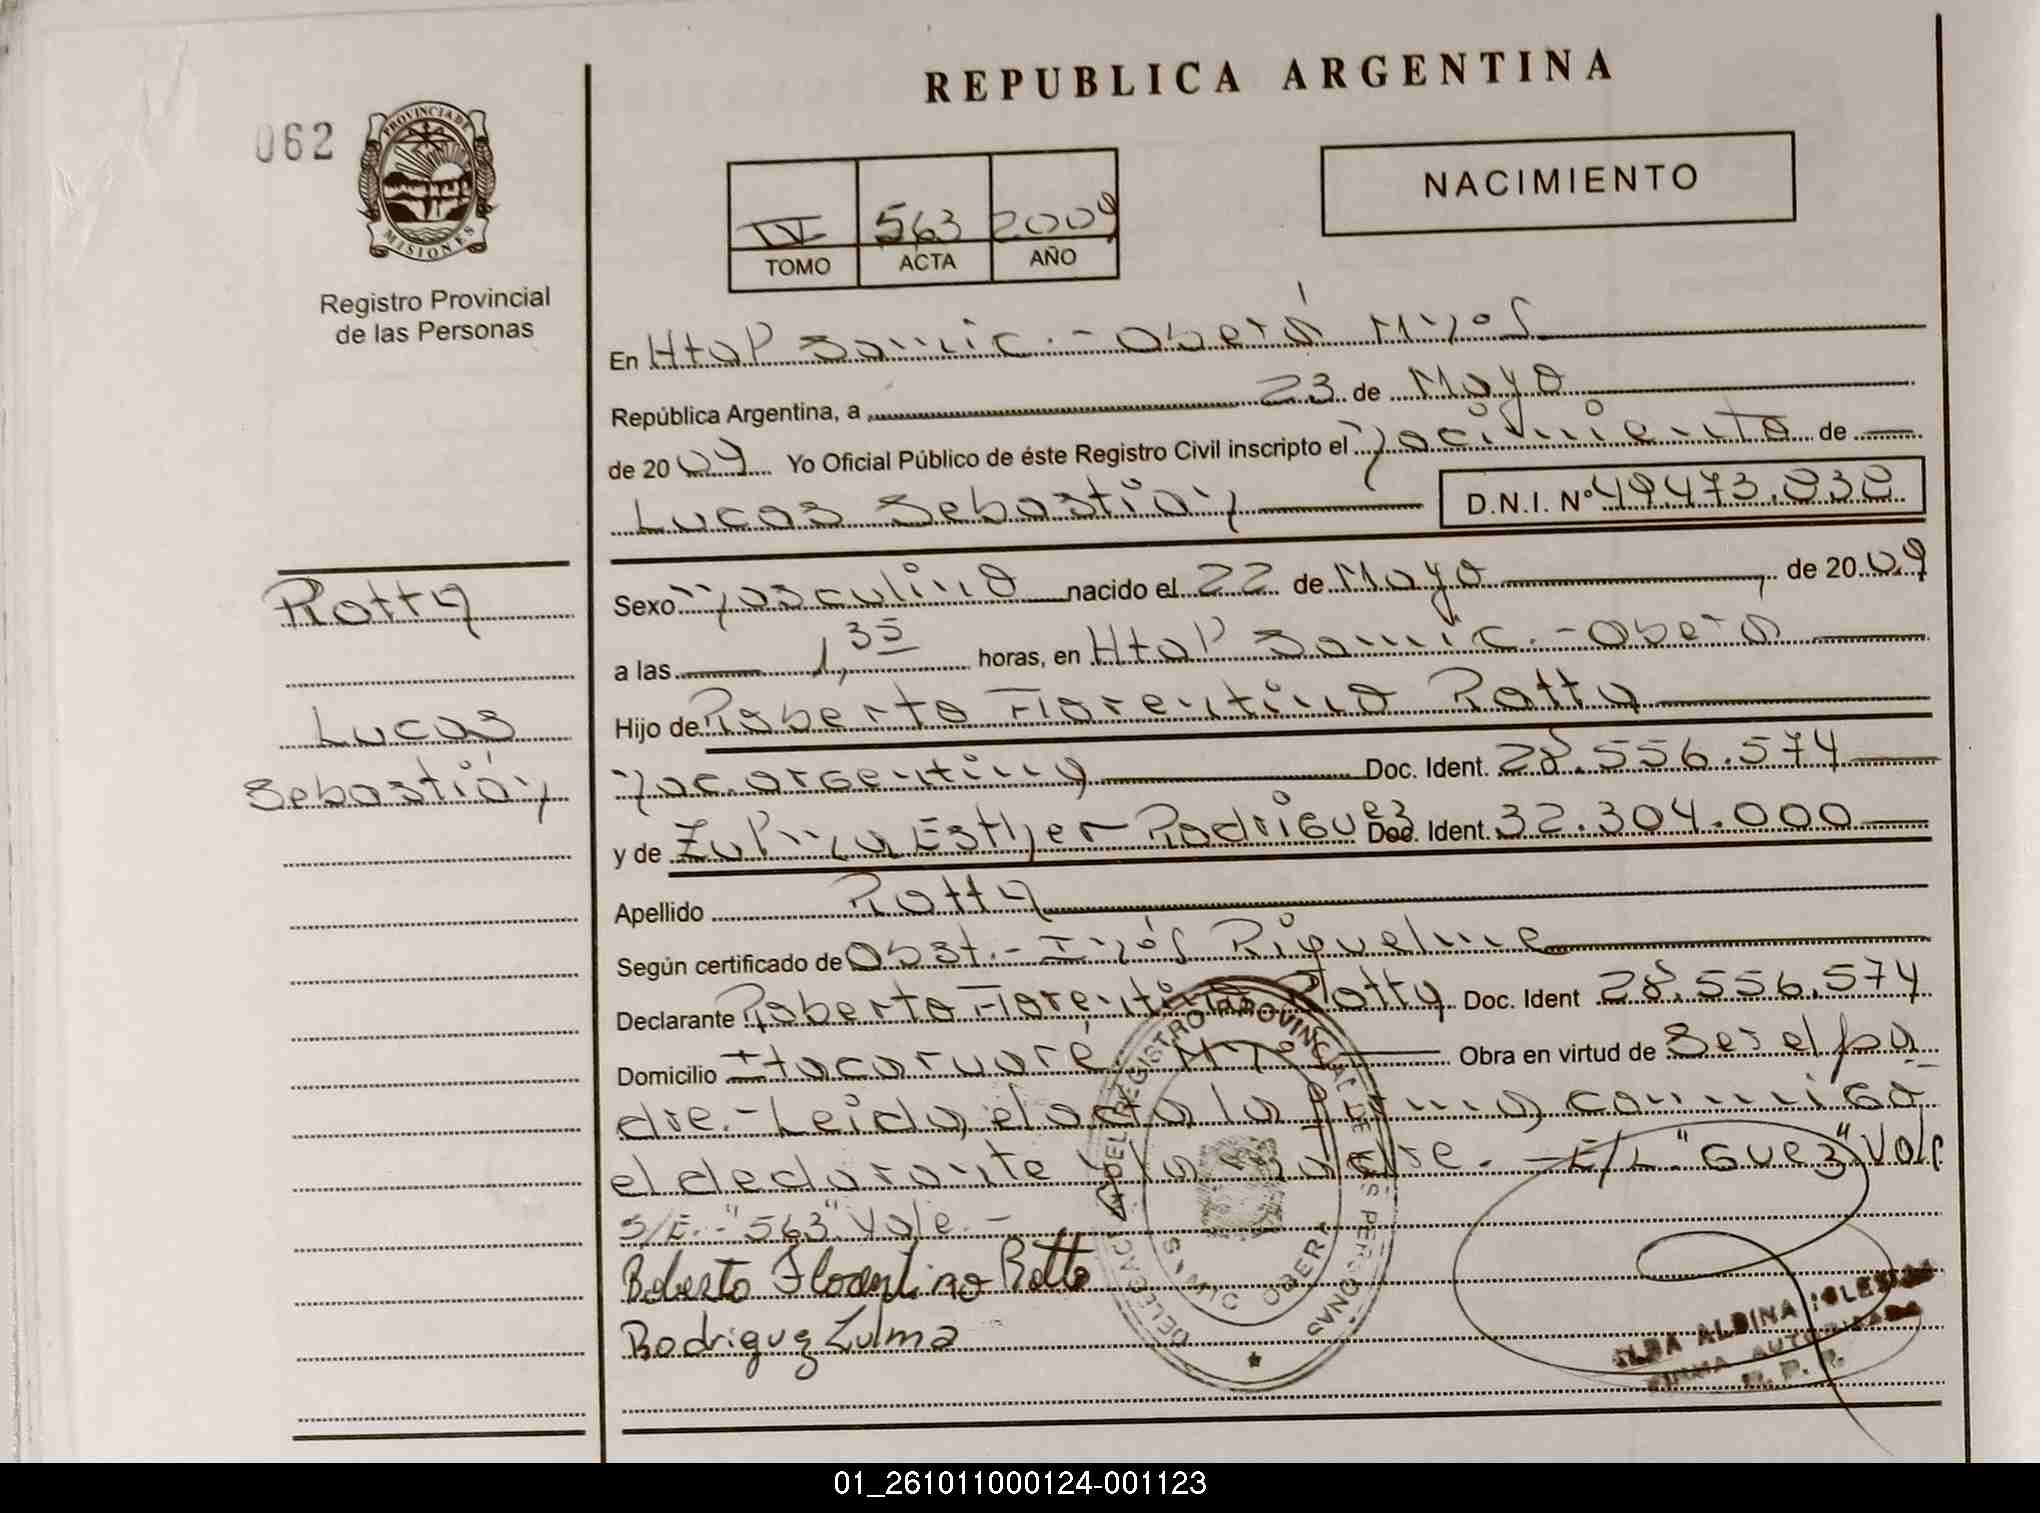 REPUBLICA ARGENTINA
062
PROVINCIA DE MISIONES
NACIMIENTO
IV 563 2009
TOMO ACTA AÑO
Registro Provincial
de las Personas
En Htal Samic.- Oberá Mnes
República Argentina, a 23 de Mayo
de 2009 Yo Oficial Público de éste Registro Civil inscripto el nacimiento de
Lucas Sebastián D.N.I. Nº 49473.030
Rotty
Lucas
Sebastián
Sexo masculino nacido el 22 de Mayo, de 2009
a las 1,35 horas, en Htal Samic.- Oberá
Hijo de Roberto Florentino Rotty
nac. argentina Doc. Ident. 28.556.574
y de Zulma Esther Rodriguez Doc. Ident. 32.304.000
Apellido Rotty
Según certificado de Obst.- Inés Riquelme
Declarante Roberto Florentino Rotty Doc. Ident 28.556.574
Domicilio Itacaruaré Mnes Obra en virtud de ser el pa
dre.- Leida el acta la firma conmigo
el declarante y la madre.- E/L "guez" Vale
S/E.- "563" Vale.-
Roberto Florentino Rotto
Rodriguez Zulma
DELEGACION DEL REGISTRO PROVINCIAL DE LAS PERSONAS
OBERA
ALBINA IGLESIAS
FIRMA AUTORIZADA
R. P. P.
01_261011000124-001123